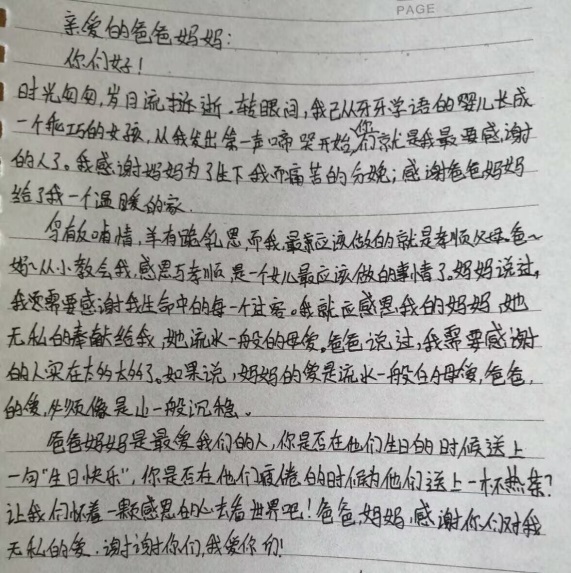 PAGE
亲爱的爸爸妈妈:
你们好!
时光匆匆,岁月流逝.转眼间,我已从牙牙学语的婴儿长成
一个乖巧的女孩,从我发出第一声啼哭开始,你们就是我最要感谢
的人了。我感谢妈妈为了生下我而痛苦的分娩;感谢爸爸妈妈
给了我一个温暖的家.
乌有反哺情,羊有跪乳恩,而我最应该做的就是孝顺父母.爸~
妈~从小教会我,感恩与孝顺,是一个女儿最应该做的事情了.妈妈说过,
我需要感谢我生命中的每一个过客。我就应感恩我的妈妈,她
无私的奉献给我,她流水一般的母爱。爸爸说过,我需要感谢
的人实在太多太多了。如果说,妈妈的爱是流水一般的母爱,爸爸
的爱,必须像是山一般沉稳。
爸爸妈妈是最爱我们的人,你是否在他们生日的时候送上
一句"生日快乐",你是否在他们疲倦的时候为他们送上一杯热茶?
让我们怀着一颗感恩的心去看世界吧!爸爸,妈妈,感谢你们对我
无私的爱.谢谢你们,我爱你们!